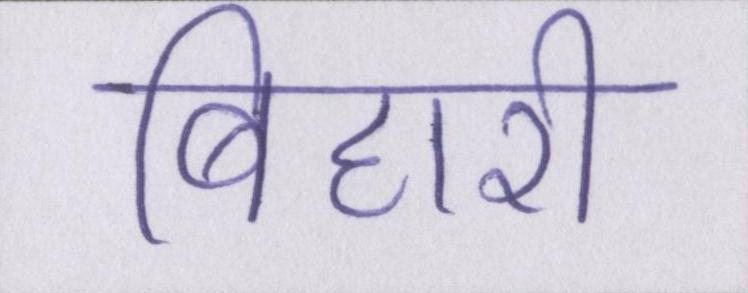 बिहारी